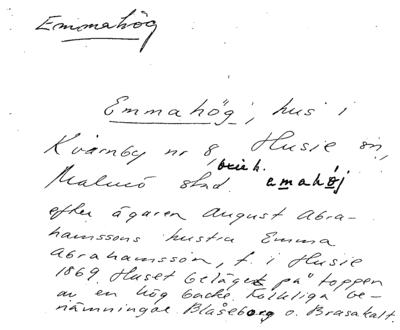 Emmahög
Emmahög, hus i
Kvarnby nr 8, Husie sn,
Malmö stad. emahøj
efter ägaren August Abra-
hamssons hustru Emma
Abrahamsson, f. i Husie
1869. Huset beläget på toppen
av en hög backe. Folkliga be-
nämningar Blåseborg o. Brasakalt